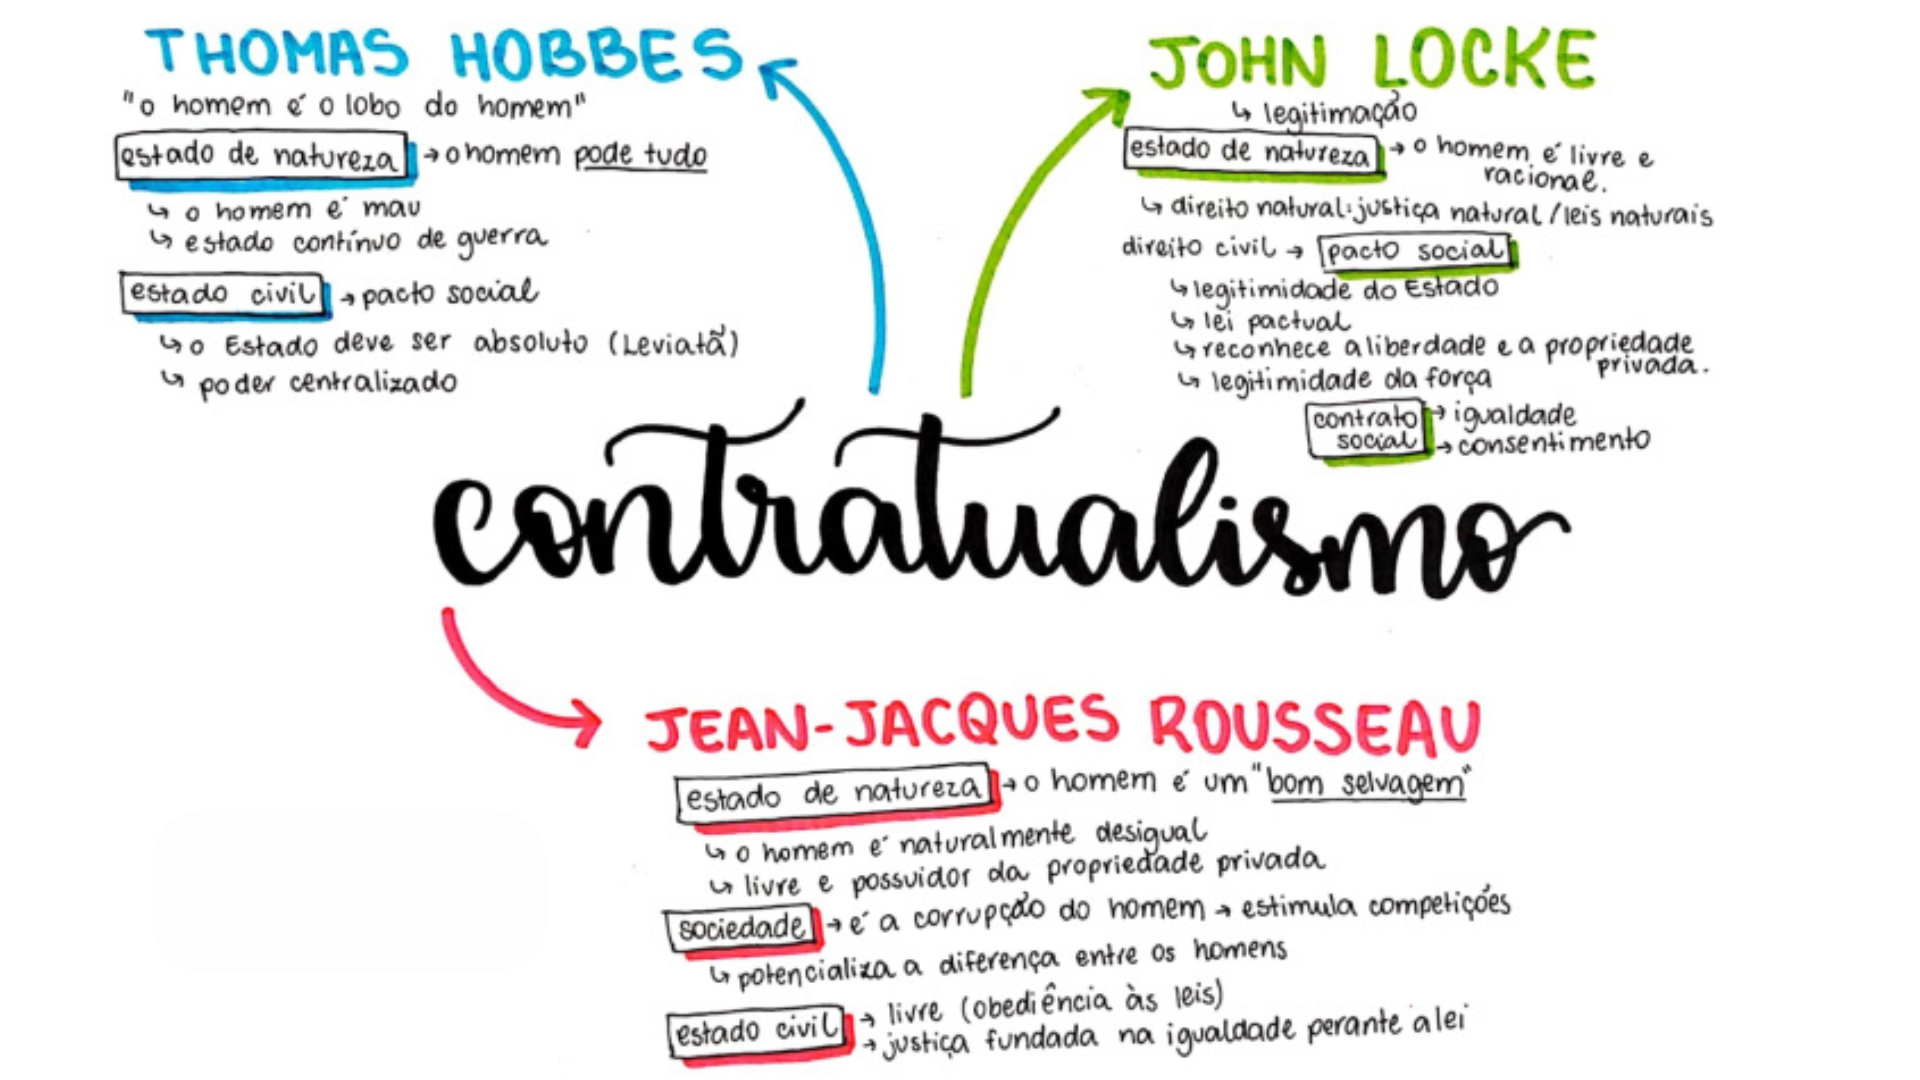 THOMAS HOBBES
"o homem é o lobo do homem"
estado de natureza → o homem pode tudo
↳ o homem é mau
↳ estado contínuo de guerra
estado civil → pacto social
↳ o Estado deve ser absoluto (Leviatã)
↳ poder centralizado
JOHN LOCKE
↳ legitimação
estado de natureza → o homem é livre e
racional.
↳ direito natural: justiça natural / leis naturais
direito civil → pacto social
↳ legitimidade do Estado
↳ lei pactual
↳ reconhece a liberdade e a propriedade
privada.
↳ legitimidade da força
contrato → igualdade
social → consentimento
contratualismo
JEAN-JACQUES ROUSSEAU
estado de natureza → o homem é um "bom selvagem"
↳ o homem é naturalmente desigual
↳ livre e possuidor da propriedade privada
sociedade → é a corrupção do homem → estimula competições
↳ potencializa a diferença entre os homens
estado civil → livre (obediência às leis)
→ justiça fundada na igualdade perante a lei